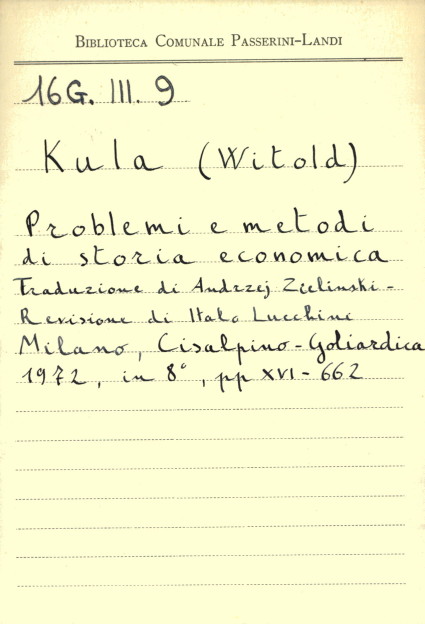 Biblioteca Comunale Passerini-Landi
16G. III. 9
Kula (Witold)
Problemi e metodi
di storia economica
Traduzione di Andrzej Zielinski -
Revisione di Italo Lucchini
Milano, Cisalpino-Goliardica
1972, in 8°, pp XVI - 662